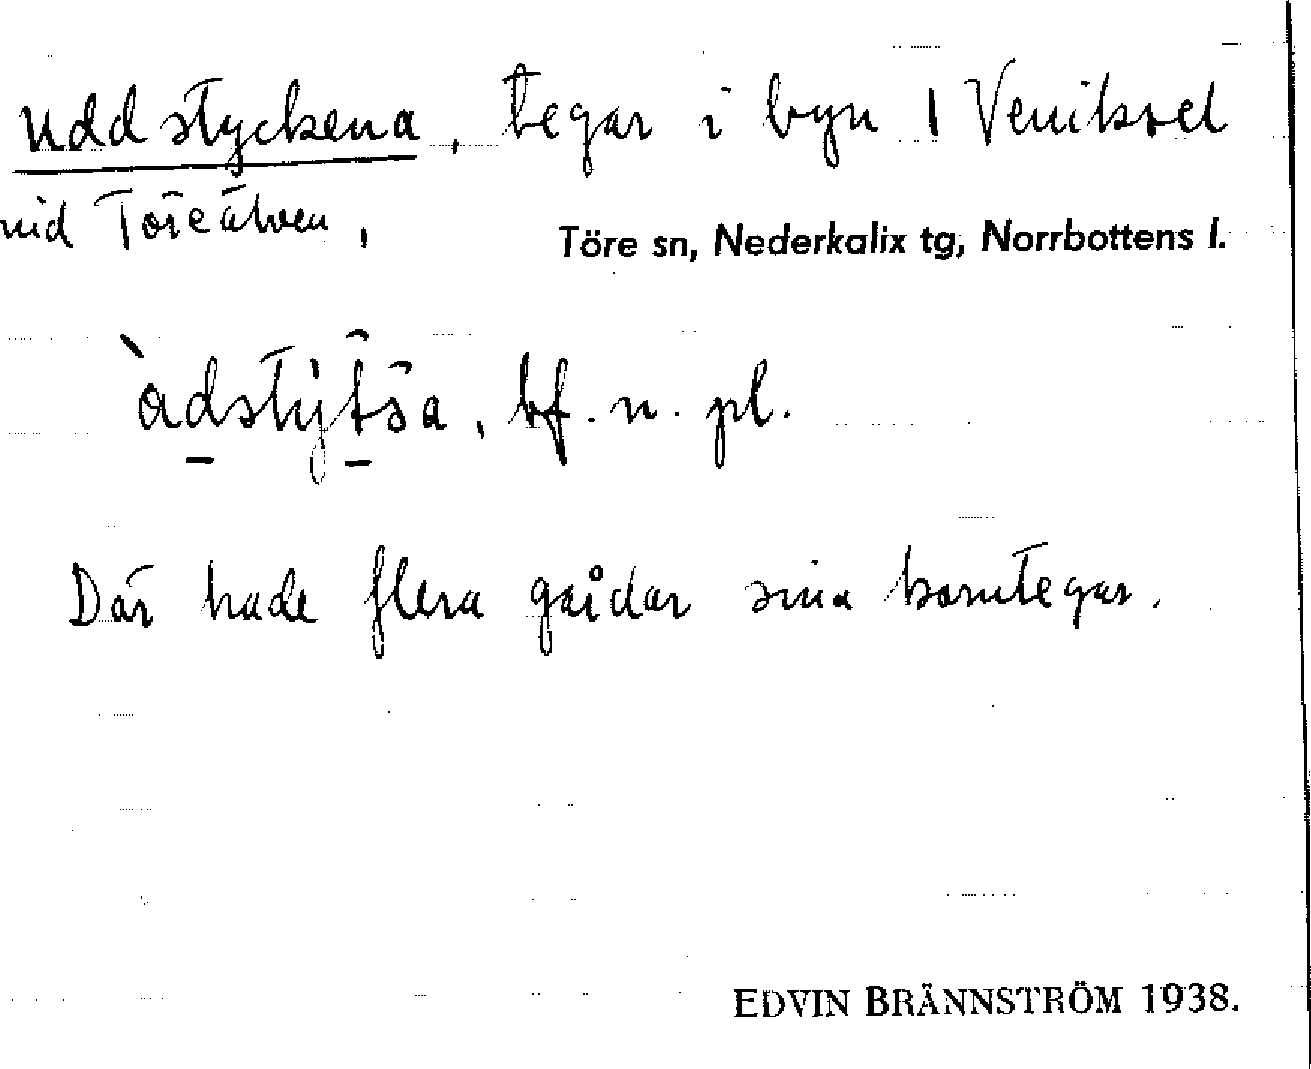 Uddstyckena, tegar i byn 1 Veniksel
vid Töreälven,
Töre sn, Nederkalix tg, Norrbottens l.
`adstyt̑s̄a, bf. n. pl.
Där hade flera gårdar sina korntegar.
EDVIN BRÄNNSTRÖM 1938.